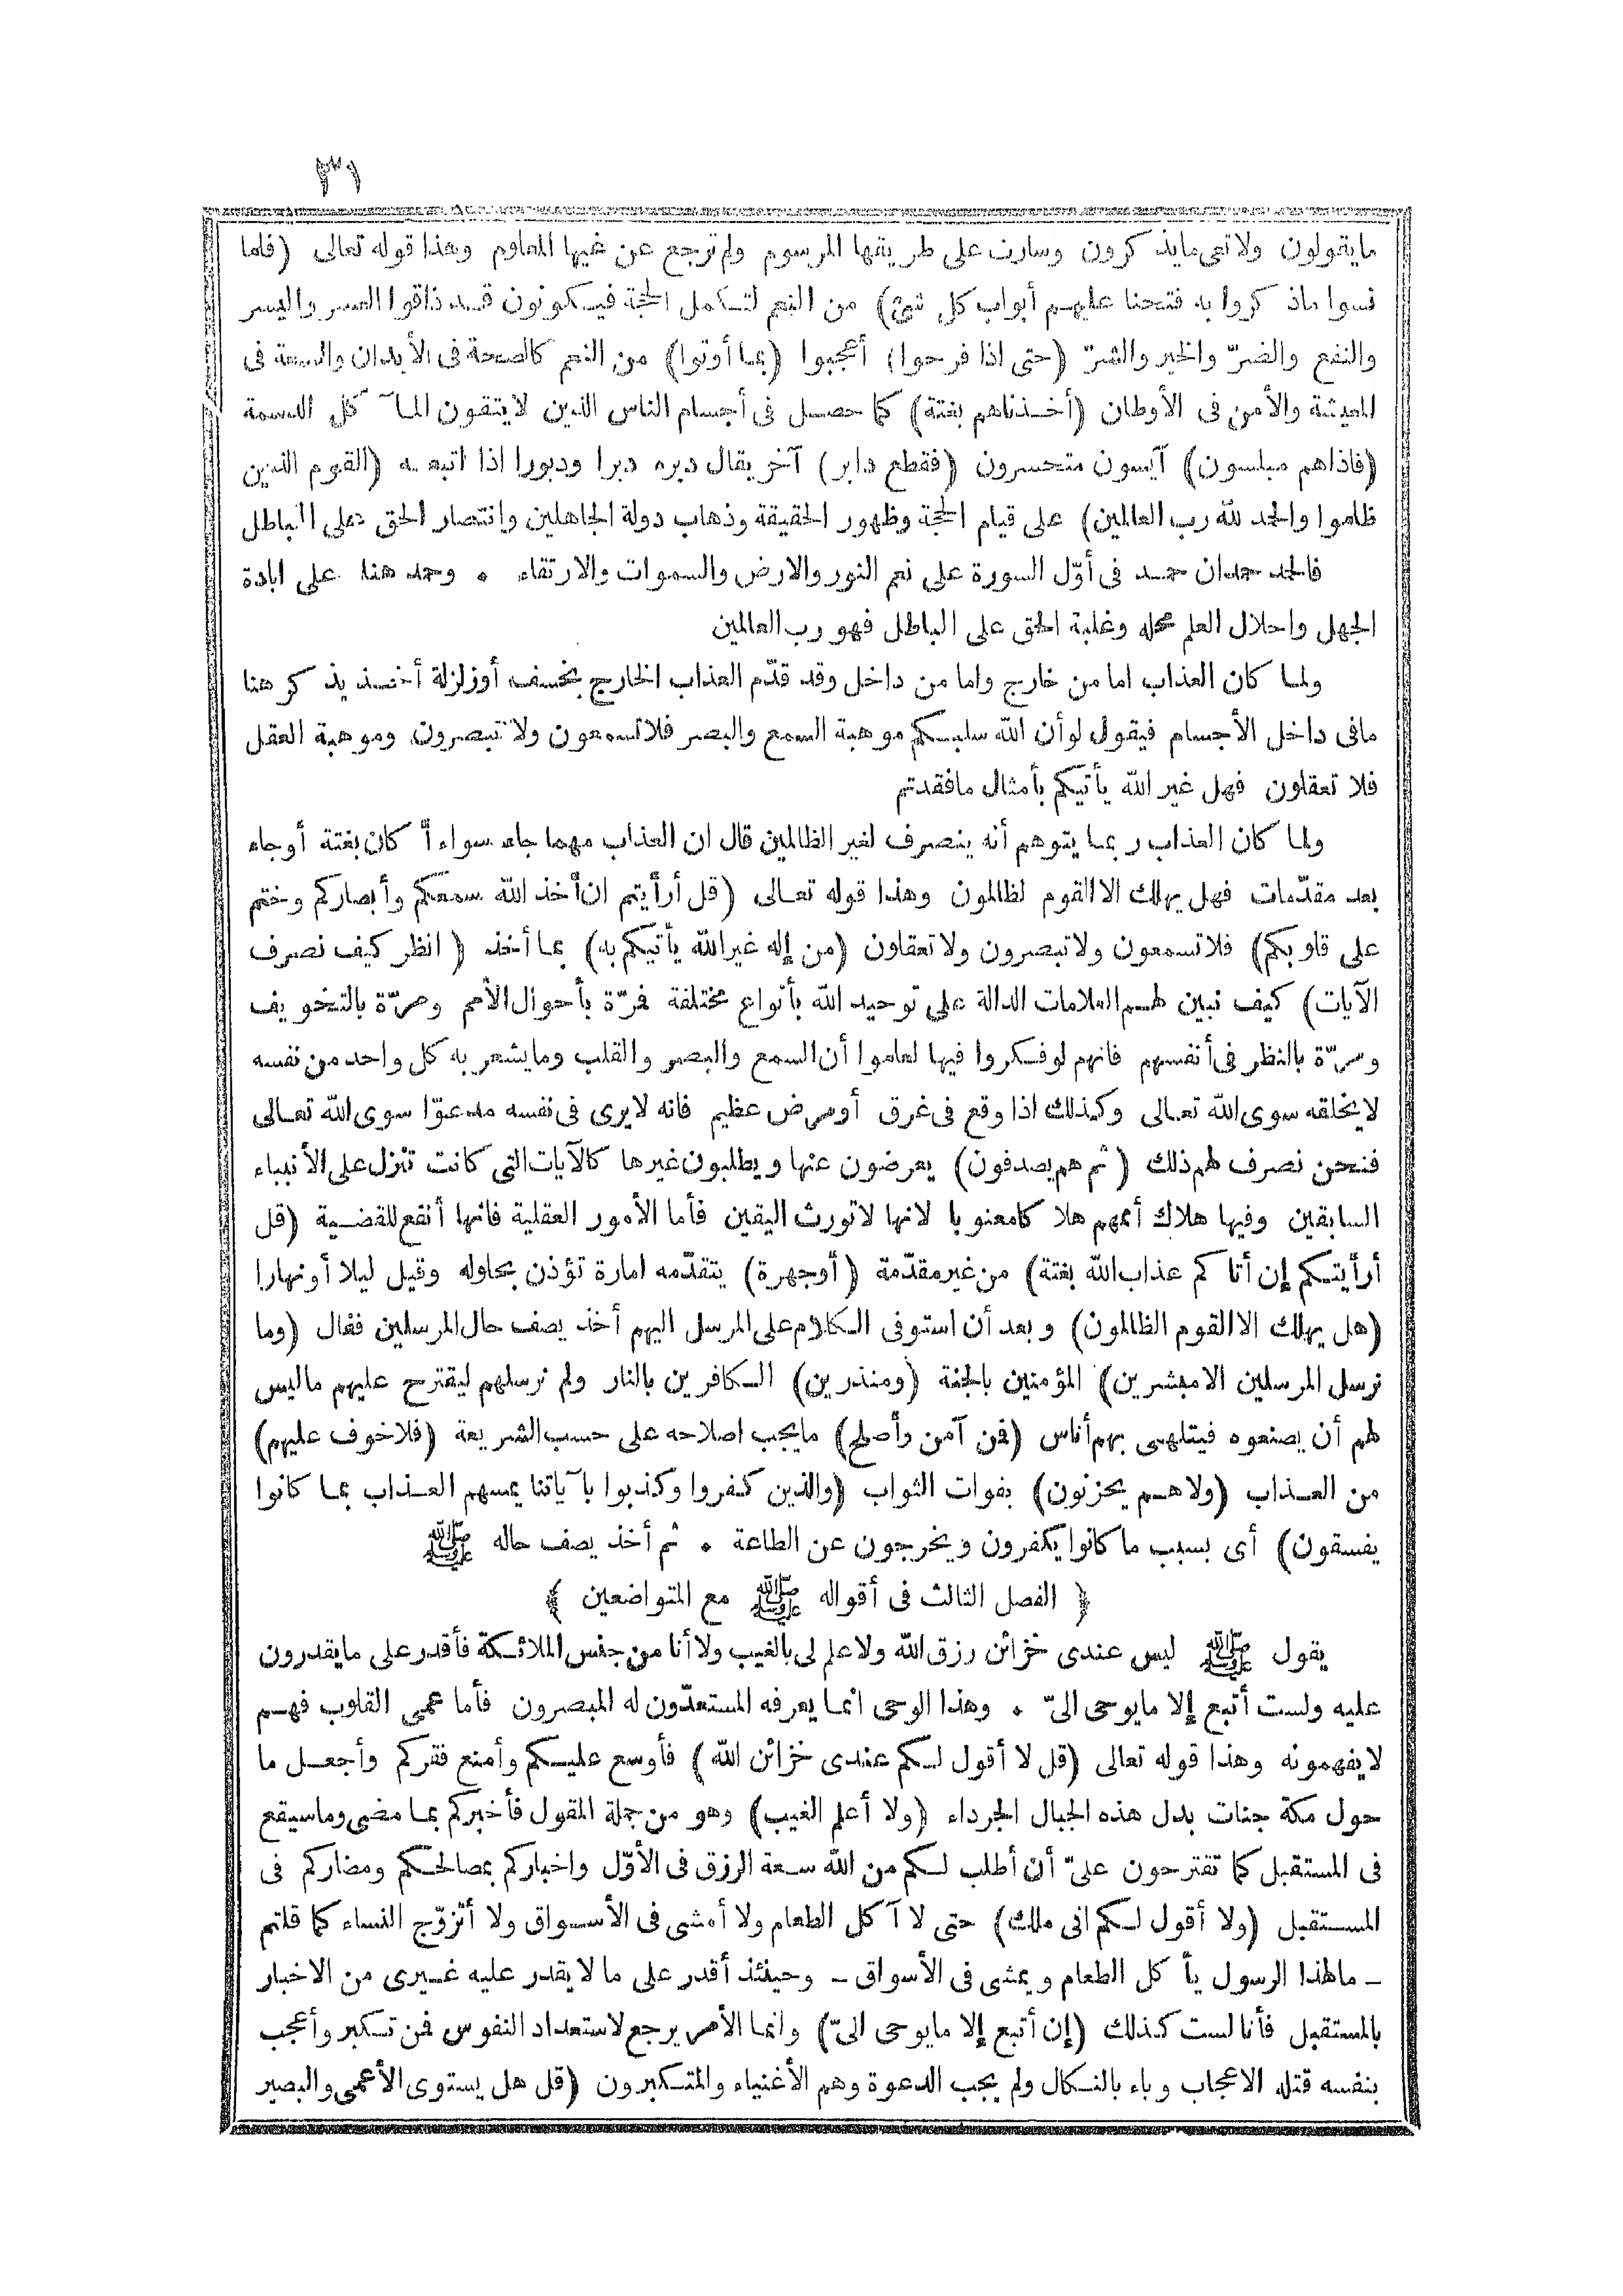 ٣٦
مايقولون ولا تعى مايذكرون وسارت على طريقها المرسوم ولم ترجع عن غيها المعلوم وهذا قوله تعالى (فلما
نسوا ماذكروا به فتحنا عليهم أبواب كل شئ) من النعم لتكمل الحجة فيكونون قد ذاقوا العسر واليسر
والنفع والضرّ والخير والشرّ (حتى اذا فرحوا) أعجبوا (بما أوتوا) من النعم كالصحة فى الأبدان والسعة فى
المعيشة والأمن فى الأوطان (أخذناهم بغتة) كما حصل فى أجسام الناس الذين لا يتقون المآكل الدسمة
(فاذاهم مبلسون) آيسون متحسرون (فقطع دابر) آخر يقال دبره دبرا ودبورا اذا اتبعه (القوم الذين
ظلموا والحمد لله رب العالمين) على قيام الحجة وظهور الحقيقة وذهاب دولة الجاهلين وانتصار الحق على الباطل
فالحمد حمدان حمد فى أوّل السورة على نعم النور والارض والسموات والارتقاء . وحمد هنا على ابادة
الجهل واحلال العلم محله وغلبة الحق على الباطل فهو رب العالمين
ولما كان العذاب اما من خارج واما من داخل وقد قدّم العذاب الخارج بخسف أوزلزلة أخذ يذكر هنا
مافى داخل الأجسام فيقول لوأن الله سلبكم موهبة السمع والبصر فلا تسمعون ولا تبصرون وموهبة العقل
فلا تعقلون فهل غير الله يأتيكم بأمثال مافقدتم
ولما كان العذاب ربما يتوهم أنه ينصرف لغير الظالمين قال ان العذاب مهما جاء سواء أكان بغتة أوجاء
بعد مقدّمات فهل يهلك الا القوم لظالمون وهذا قوله تعالى (قل أرأيتم ان أخذ الله سمعكم وأبصاركم وختم
على قلوبكم) فلا تسمعون ولا تبصرون ولا تعقلون (من إله غير الله يأتيكم به) بما أخذ (انظر كيف نصرف
الآيات) كيف نبين لهم العلامات الدالة على توحيد الله بأنواع مختلفة فمرّة بأحوال الأمم ومرّة بالتخويف
ومرّة بالنظر فى أنفسهم فانهم لو فكروا فيها لعلموا أن السمع والبصر والقلب ومايشعر به كل واحد من نفسه
لا يخلقه سوى الله تعالى وكذلك اذا وقع فى غرق أومرض عظيم فانه لا يرى فى نفسه مدعوّا سوى الله تعالى
فنحن نصرف لهم ذلك (ثم هم يصدفون) يعرضون عنها ويطلبون غيرها كالآيات التى كانت تنزل على الأنبياء
السابقين وفيها هلاك أممهم هلاكا معنويا لانها لا تورث اليقين فأما الأمور العقلية فانها أنفع للقضية (قل
أرأيتكم إن أتاكم عذاب الله بغتة) من غير مقدّمة (أوجهرة) يتقدّمه امارة تؤذن بحلوله وقيل ليلا أونهارا
(هل يهلك الا القوم الظالمون) وبعد أن استوفى الكلام على المرسل اليهم أخذ يصف حال المرسلين فقال (وما
نرسل المرسلين الا مبشرين) المؤمنين بالجنة (ومنذرين) الكافرين بالنار ولم نرسلهم ليقترح عليهم ماليس
لهم أن يصنعوه فيتلهى بهم أناس (فمن آمن وأصلح) مايجب اصلاحه على حسب الشريعة (فلا خوف عليهم)
من العذاب (ولا هم يحزنون) بفوات الثواب (والذين كفروا وكذبوا بآياتنا يمسهم العذاب بما كانوا
يفسقون) أى بسبب ما كانوا يكفرون ويخرجون عن الطاعة . ثم أخذ يصف حاله ﷺ
﴿ الفصل الثالث فى أقواله ﷺ مع المتواضعين ﴾
يقول ﷺ ليس عندى خزائن رزق الله ولا علم لى بالغيب ولا أنا من جنس الملائكة فأقدر على مايقدرون
عليه ولست أتبع إلا مايوحى الىّ . وهذا الوحى انما يعرفه المستعدّون له المبصرون فأما عمى القلوب فهم
لا يفهمونه وهذا قوله تعالى (قل لا أقول لكم عندى خزائن الله) فأوسع عليكم وأمنع فقركم وأجعل ما
حول مكة جنات بدل هذه الجبال الجرداء (ولا أعلم الغيب) وهو من جملة المقول فأخبركم بما مضى وماسيقع
فى المستقبل كما تقترحون علىّ أن أطلب لكم من الله سعة الرزق فى الأوّل واخباركم بمصالحكم ومضاركم فى
المستقبل (ولا أقول لكم انى ملك) حتى لا آكل الطعام ولا أمشى فى الأسواق ولا أتزوّج النساء كما قلتم
ـ مالهذا الرسول يأكل الطعام ويمشى فى الأسواق ـ وحينئذ أقدر على ما لا يقدر عليه غيرى من الاخبار
بالمستقبل فأنا لست كذلك (إن أتبع إلا مايوحى الىّ) وانما الأمر يرجع لاستعداد النفوس فمن تكبر وأعجب
بنفسه قتله الاعجاب وباء بالنكال ولم يجب الدعوة وهم الأغنياء والمتكبرون (قل هل يستوى الأعمى والبصير